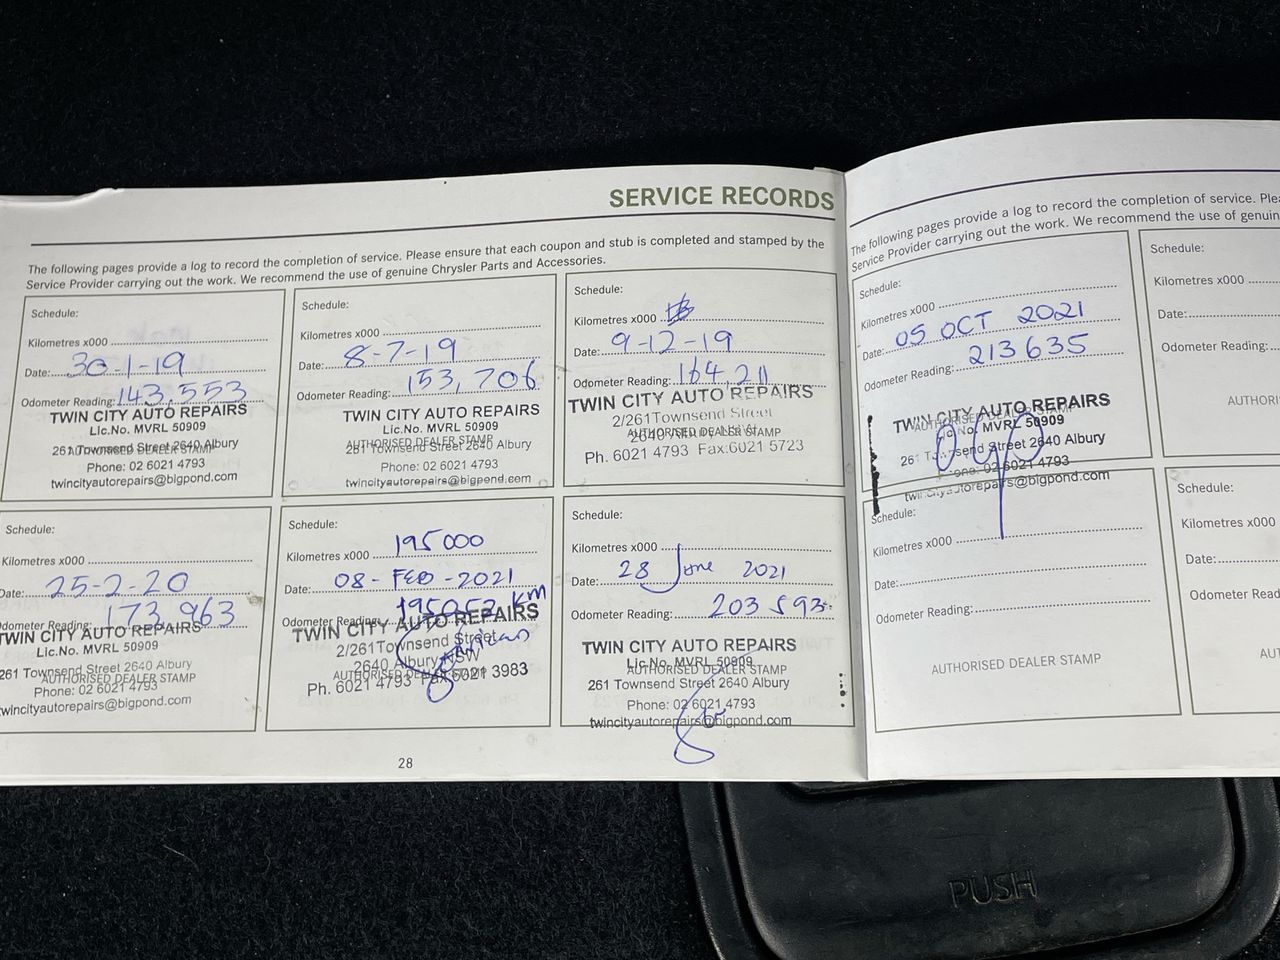 SERVICE RECORDS
The following pages provide a log to record the completion of service. Please ensure that each coupon and stub is completed and stamped by the
Service Provider carrying out the work. We recommend the use of genuine Chrysler Parts and Accessories.
Schedule:
Kilometres x000
Date: 30-1-19
Odometer Reading: 143,553
TWIN CITY AUTO REPAIRS
Lic.No. MVRL 50909
261 Townsend Street 2640 Albury
AUTHORISED DEALER STAMP
Phone: 02 6021 4793
twincityautorepairs@bigpond.com
Schedule:
Kilometres x000
Date: 8-7-19
Odometer Reading: 153,706
TWIN CITY AUTO REPAIRS
Lic.No. MVRL 50909
AUTHORISED DEALER STAMP
261 Townsend Street 2640 Albury
Phone: 02 6021 4793
twincityautorepairs@bigpond.com
Schedule:
Kilometres x000
Date: 9-12-19
Odometer Reading: 164,211
TWIN CITY AUTO REPAIRS
2/261 Townsend Street
AUTHORISED DEALER STAMP
2640
Ph. 6021 4793 Fax:6021 5723
Schedule:
Kilometres x000
Date: 25-2-20
Odometer Reading: 173,963
TWIN CITY AUTO REPAIRS
Lic.No. MVRL 50909
261 Townsend Street 2640 Albury
AUTHORISED DEALER STAMP
Phone: 02 6021 4793
twincityautorepairs@bigpond.com
Schedule:
Kilometres x000 195000
Date: 08-FEB-2021
Odometer Reading: 195052 km
TWIN CITY AUTO REPAIRS
2/261 Townsend Street
2640 Albury NSW
AUTHORISED
Ph. 6021 4793 Fax 6021 3983
Schedule:
Kilometres x000
Date: 28 June 2021
Odometer Reading: 203593
TWIN CITY AUTO REPAIRS
Lic.No. MVRL 50909
AUTHORISED DEALER STAMP
261 Townsend Street 2640 Albury
Phone: 02 6021 4793
twincityautorepairs@bigpond.com
28
The following pages provide a log to record the completion of service. Plea
Service Provider carrying out the work. We recommend the use of genuin
Schedule:
Kilometres x000
Date: 05 OCT 2021
Odometer Reading: 213635
TWIN CITY AUTO REPAIRS
AUTHORISED DEALER STAMP
Lic.No. MVRL 50909
261 Townsend Street 2640 Albury
Phone: 02 6021 4793
twincityautorepairs@bigpond.com
Kilometres x000
Date:
Odometer Reading:
AUTHORI
Schedule:
Kilometres x000
Date:
Odometer Reading:
AUTHORISED DEALER STAMP
Schedule:
Kilometres x000
Date:
Odometer Read
AUT
PUSH